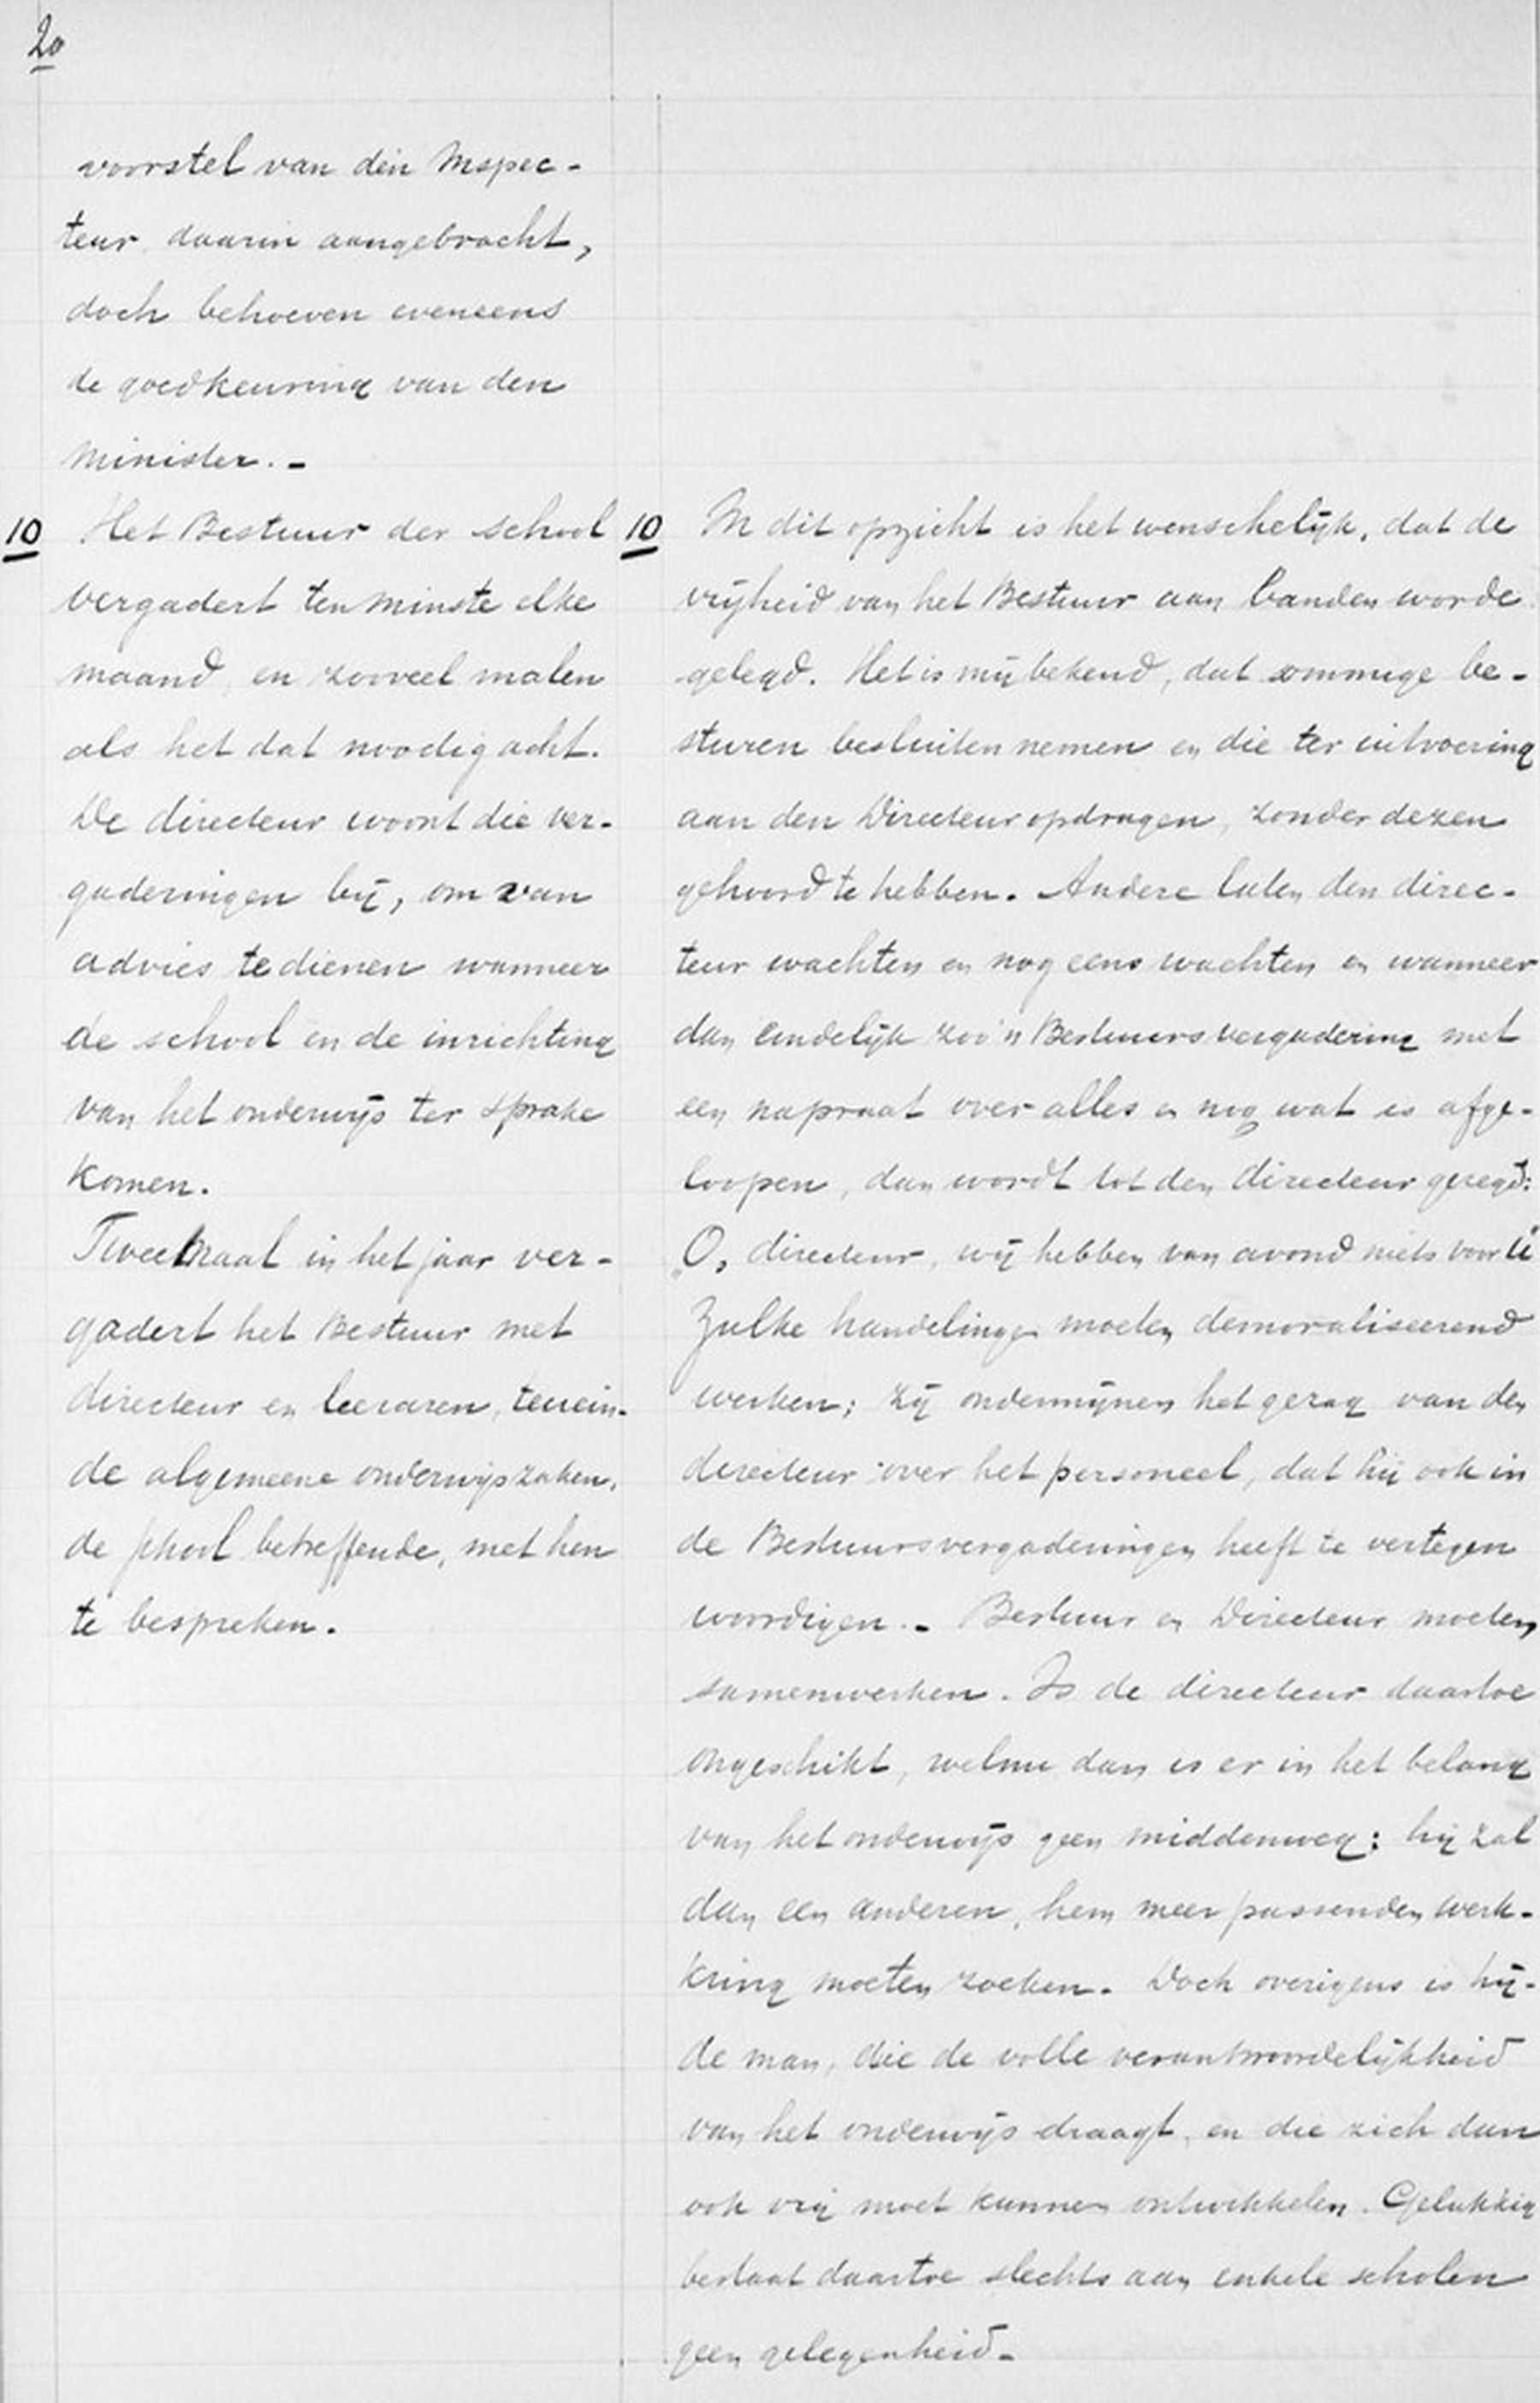 20
voorstel van den Inspec-
teur daarin aangebracht,
doch behoeven eveneens
de goedkeuring van den
Minister. -
10 Het Bestuur der school
vergadert tenminste elke
maand, en zooveel malen
als het dat noodig acht.
De directeur woont die ver-
gaderingen bij, om van
advies te dienen wanneer
de school en de inrichting
van het onderwijs ter sprake
komen.
Tweemaal in het jaar ver-
gadert het Bestuur met
directeur en leeraren, tenein-
de algemeene onderwijszaken,
de school betreffende, met hen
te bespreken.
10 In dit opzicht is het wenschelijk, dat de
vrijheid van het Bestuur aan banden worde
gelegd. Het is mij bekend, dat sommige be-
sturen besluiten nemen en die ter uitvoering
aan den Directeur opdragen, zonder dezen
gehoord te hebben. Andere laten den direc-
teur wachten en nog eens wachten en wanneer
dan eindelijk zoo'n Bestuursvergadering met
een napraat over alles en nog wat is afge-
loopen, dan wordt tot den directeur gezegd:
„O, directeur, wij hebben van avond niets voor U"
Zulke handelingen moeten demoraliseerend
werken; zij ondermijnen het gezag van den
directeur over het personeel, dat hij ook in
de Bestuursvergaderingen heeft te vertegen
woordigen. - Bestuur en Directeur moeten
samenwerken. Is de directeur daartoe
ongeschikt, welnu dan is er in het belang
van het onderwijs geen middenweg: hij zal
dan een anderen, hem meer passenden werk-
kring moeten zoeken. Doch overigens is hij-
de man, die de volle verantwoordelijkheid
van het onderwijs draagt, en die zich dan
ook vrij moet kunnen ontwikkelen. Gelukkig
bestaat daartoe slechts aan enkele scholen
geen gelegenheid.-